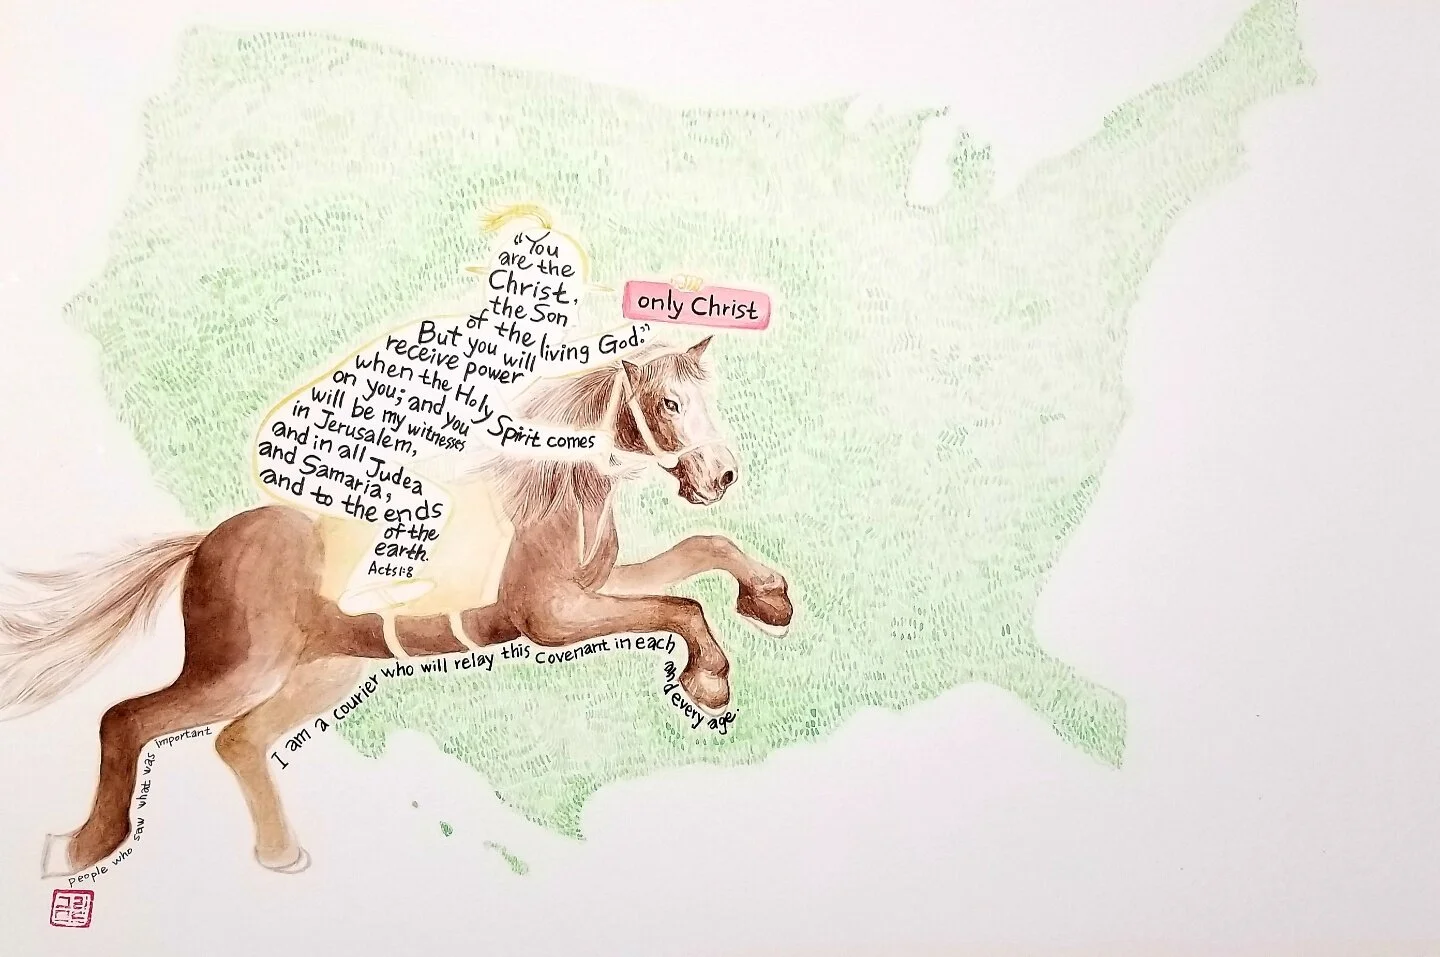 "You
are the
Christ,
the Son
of the living God."
But you will
receive power
when the Holy Spirit comes
on you; and you
will be my witnesses
in Jerusalem,
and in all Judea
and Samaria,
and to the ends
of the
earth.
Acts 1:8
only Christ
I am a courier who will relay this covenant in each and every age.
people who saw what was important